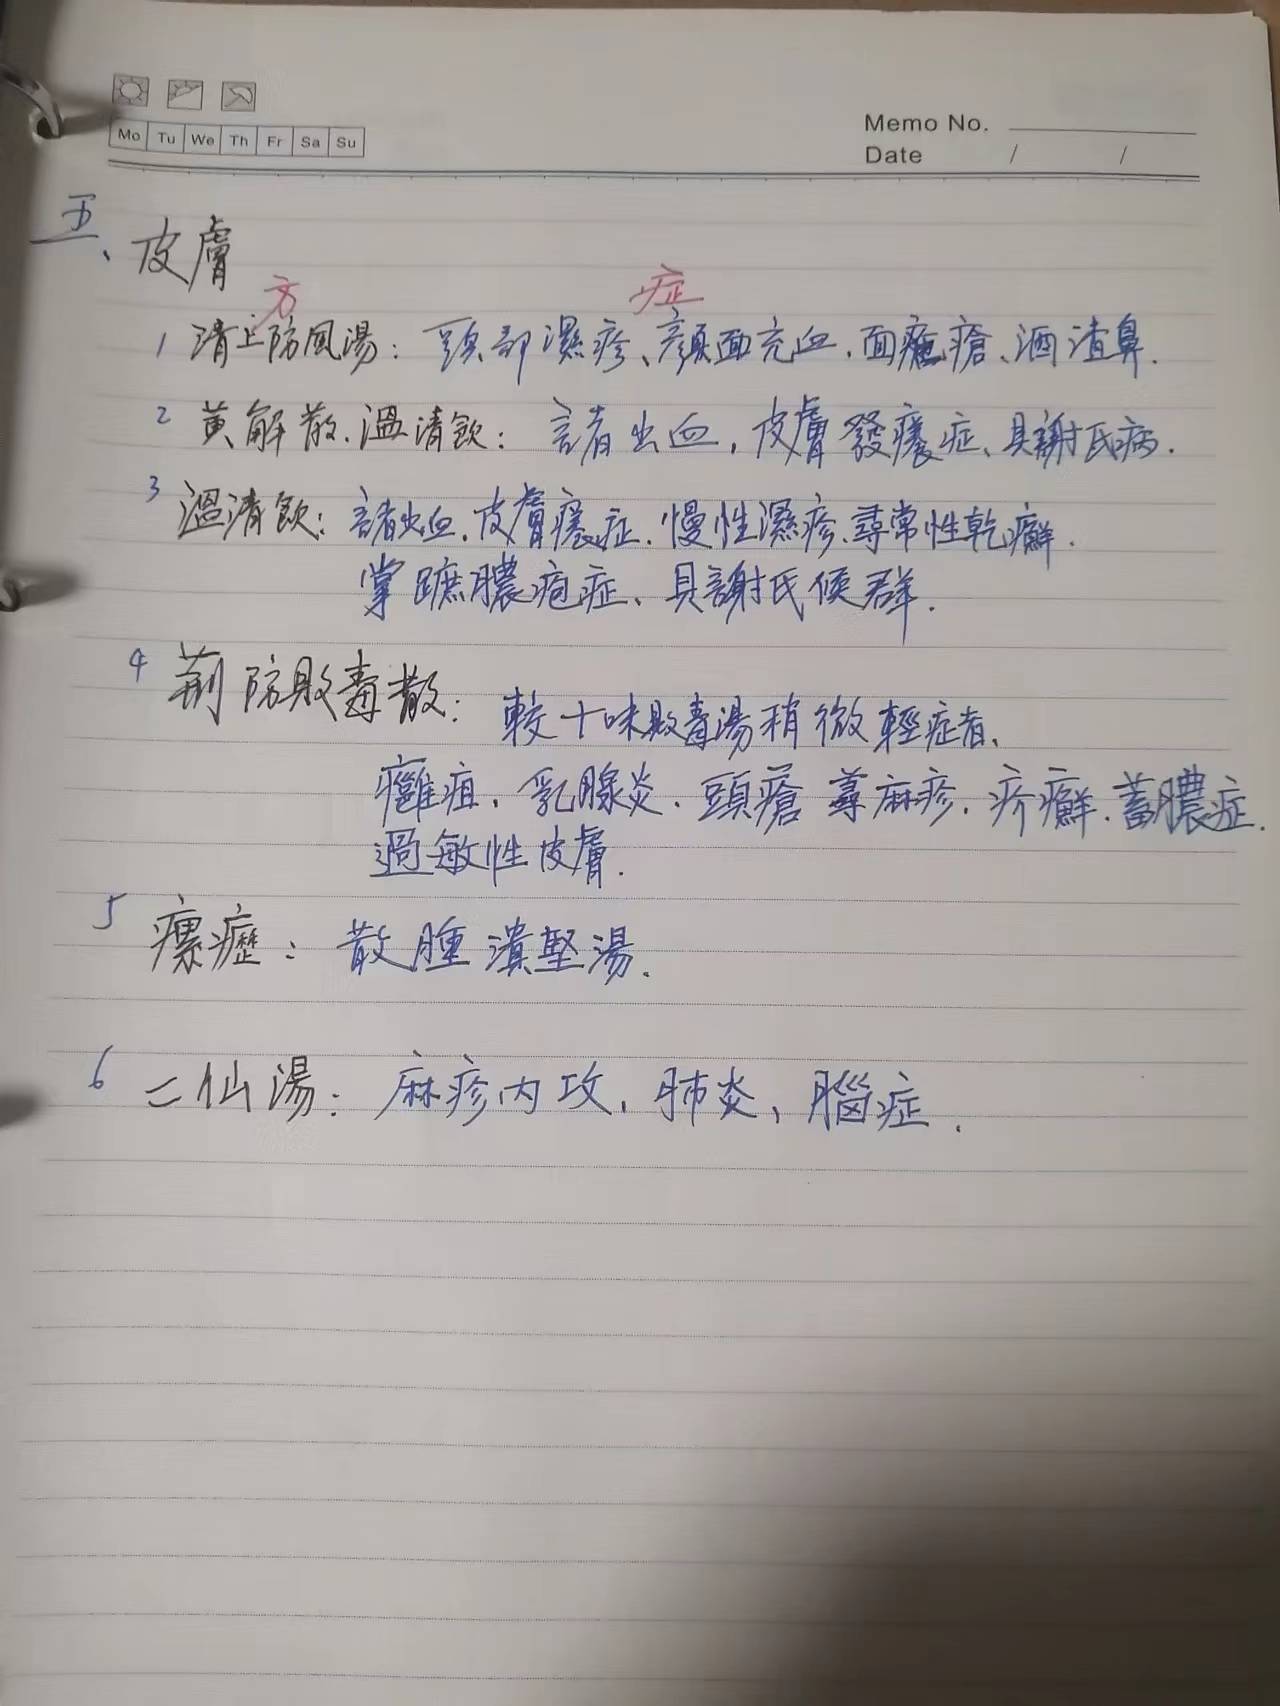 Mo Tu We Th Fr Sa Su
Memo No.
Date / /
五、皮膚
方 症
1 清上防風湯：頭部濕疹、顏面充血、面瘡、酒渣鼻.
2 黃解散、溫清飲：諸出血，皮膚發症、具謝氏病.
3 溫清飲：諸出血，皮膚症，慢性濕疹、尋常性乾癬.
掌蹠膿疱症、具謝氏候群.
4 荊防敗毒散：較十味敗毒湯稍微輕症者、
癰疽、乳腺炎、頭瘡 蕁麻疹、疥癬、蓄膿症.
過敏性皮膚.
5 瘰癧：散腫潰堅湯.
6 二仙湯：麻疹內攻、肺炎、腦症.